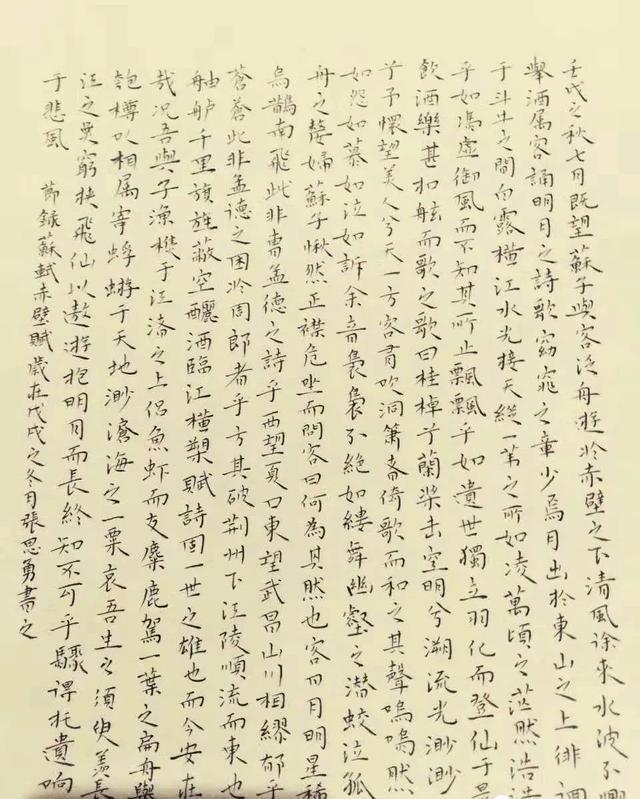 壬戌之秋七月既望蘇子與客泛舟遊於赤壁之下清風徐來水波不興
舉酒属客誦明月之詩歌窈窕之章少焉月出於東山之上徘徊
于斗牛之間白露橫江水光接天縱一葦之所如凌萬頃之茫然浩浩
乎如馮虛御風而不知其所止飄飄乎如遺世獨立羽化而登仙于是
飲酒樂甚扣舷而歌之歌曰桂棹兮蘭槳击空明兮溯流光渺渺
兮予懷望美人兮天一方客有吹洞簫者倚歌而和之其聲嗚嗚然
如怨如慕如泣如訴余音裊裊不絕如縷舞幽壑之潜蛟泣孤
舟之嫠婦蘇子愀然正襟危坐而問客曰何為其然也客曰月明星稀
烏鵲南飛此非曹孟德之詩乎西望夏口東望武昌山川相繆郁乎
蒼蒼此非孟德之困於周郎者乎方其破荆州下江陵順流而東也
舳舻千里旗旌蔽空釃酒臨江橫槊賦詩固一世之雄也而今安在
哉況吾與子漁樵于江渚之上侶魚虾而友麋鹿駕一葉之扁舟舉
匏樽以相属寄蜉蝣于天地渺滄海之一粟哀吾生之須臾羡長
江之無窮挾飛仙以遨遊抱明月而長終知不可乎驟得托遺响
于悲風 節錄蘇軾赤壁賦歲在戊戌之冬月張思勇書之